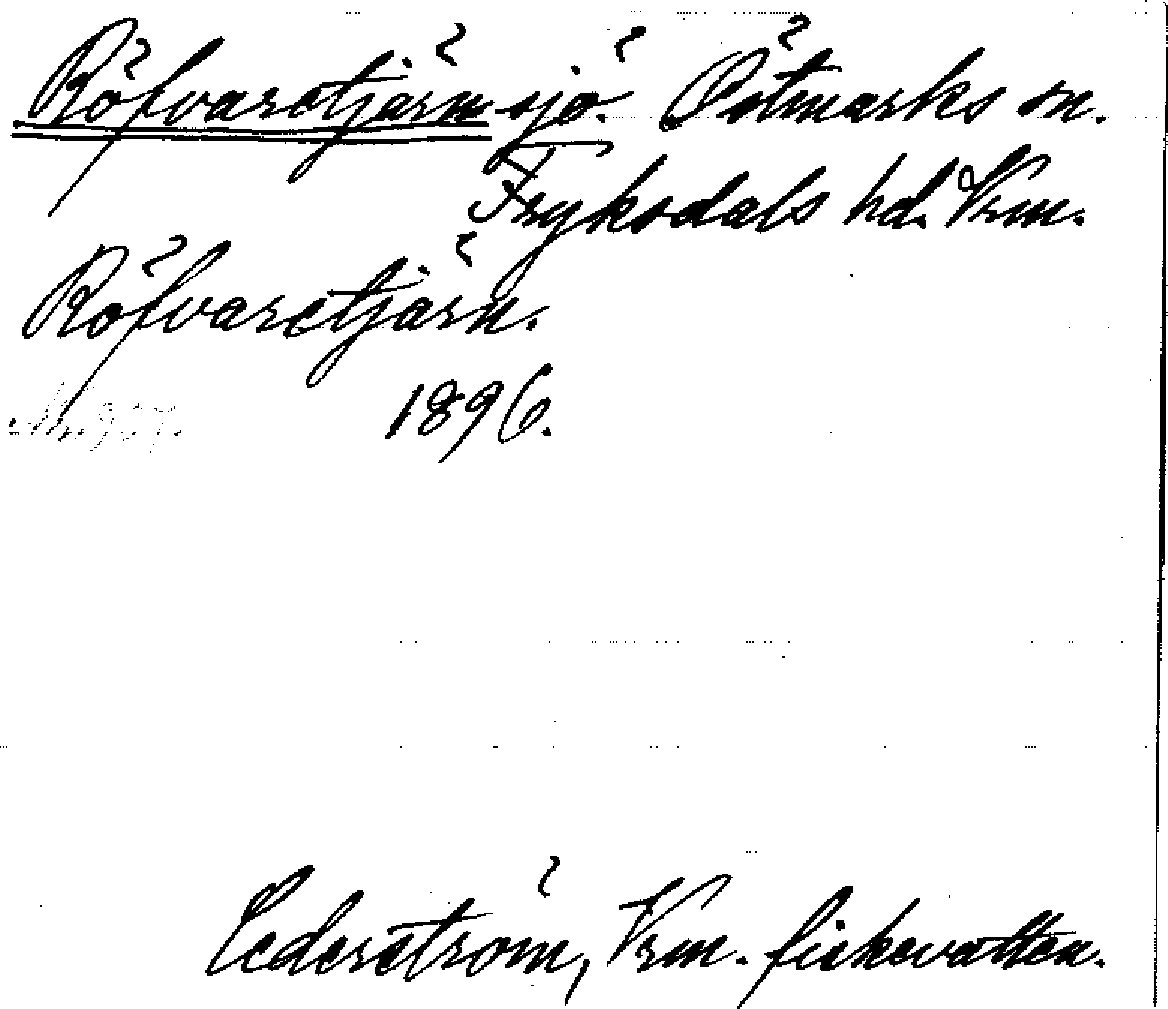 Röfvarstjärn sjö. Östmarks sn.
Fryksdals hd. Vrm.
Röfvarstjärn.
1896.
Cederström, Vrm. fiskevatten.